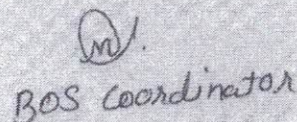 BOS Coordinator